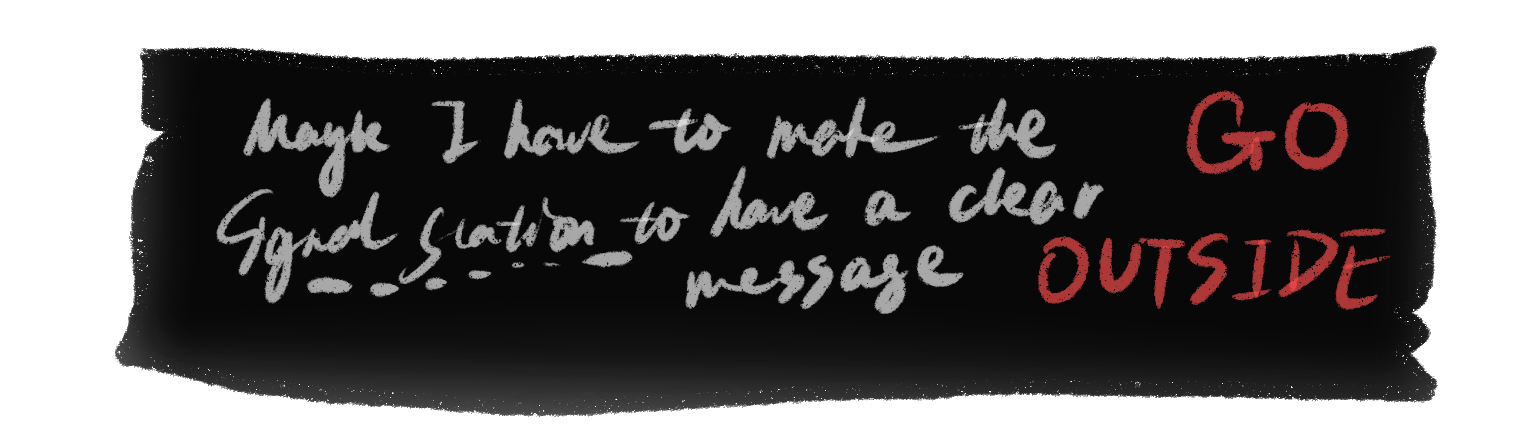 Maybe I have to make the
Signal Station to have a clear
message
GO
OUTSIDE